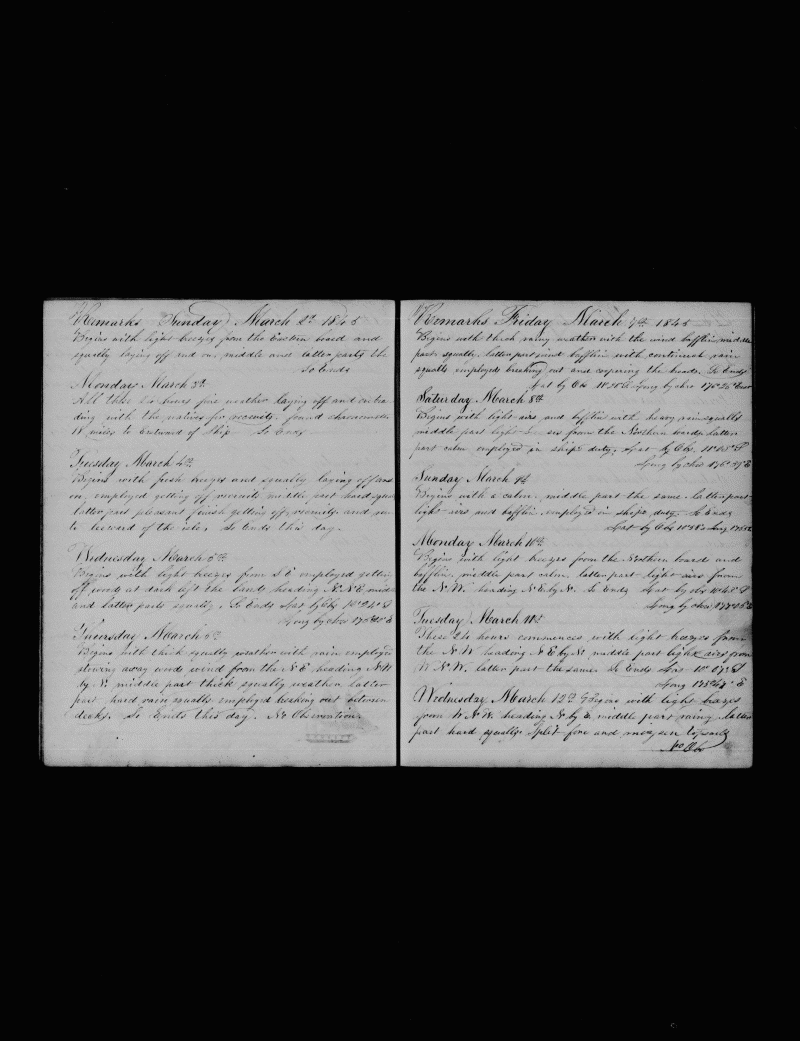 Remarks Sunday March 2d 1845
Begins with light breezes from the Eastern board and
squally laying off and on, middle and latter parts the
So Ends
Monday March 3d
All these 24 hours fine weather laying off and on tra
ding with the natives for recruits, found chronometer
18 miles to Eastward of Ship So Ends
Tuesday March 4th
Begins with fresh breezes and squally laying off and
on, employed getting off recruits middle part hard squa
latter part pleasant finish getting off recruits and run
to leeward of the isles, So Ends this day.
Wednesday March 5th
Begins with light breezes from S E employed getting
off wood at dark left the land heading N.N.E mid
and latter parts squally. So Ends Lat by Obs S
Long by chro E
Thursday March 6th
Begins with thick squally weather with rain employed
stowing away wood wind from the N E heading N W
by N. middle part thick squally weather latter
part hard rain squalls employed breaking out between
decks. So Ends this day. No Observation.
Remarks Friday March 7th 1845
Begins with thick rainy weather with the wind bafflin, middle
part squally, latter part wind bafflin with continual rain
squalls employed breaking out and coopering the heads. So Ends
Lat by Obs Long by chro East
Saturday March 8th
Begins with light airs and bafflin with heavy rain squalls
middle part light from the Northern board, latter
part calm employed in ships duty, Lat by Obs. S
Long by chro E
Sunday March 9th
Begins with a calm, middle part the same latter part
light airs and bafflin, employed in ships duty So Ends
Lat by Obs Long
Monday March 10th
Begins with light breezes from the Northern board and
bafflin, middle part calm, latter part light airs from
the N.W. heading N.E. by N. So Ends Lat by obs S
Long by chro
Tuesday March 11th
These 24 hours commences with light breezes from
the N.W. heading N E by N. middle part light airs from
W.N.W. latter part the same So Ends Lat S
Long E
Wednesday March 12th Begins with light breezes
from W N W heading N. by E middle part rainy, latter
part hard squalls split fore and mizzen topsails
No Obs